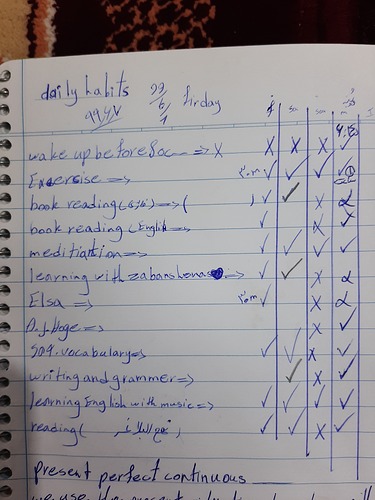 daily habits 99/6/1 firday
wake up before 8oc => X X X X
Exercise => ✓ ✓ ✓
book reading ( ) ✓ ✓ X
book reading (English ✓ X ✓
meditiantion => ✓ ✓ ✓ ✓
learning with zabanshenas => ✓ ✓ X
Elsa => ✓ X
D.J Hoge => X ✓
504.vocabulary => ✓ ✓ X ✓
writing and grammer => ✓ X ✓
learning English with music => ✓ ✓ ✓ ✓
reading ( ) ✓ ✓ X ✓
present perfect continuous
we use the present